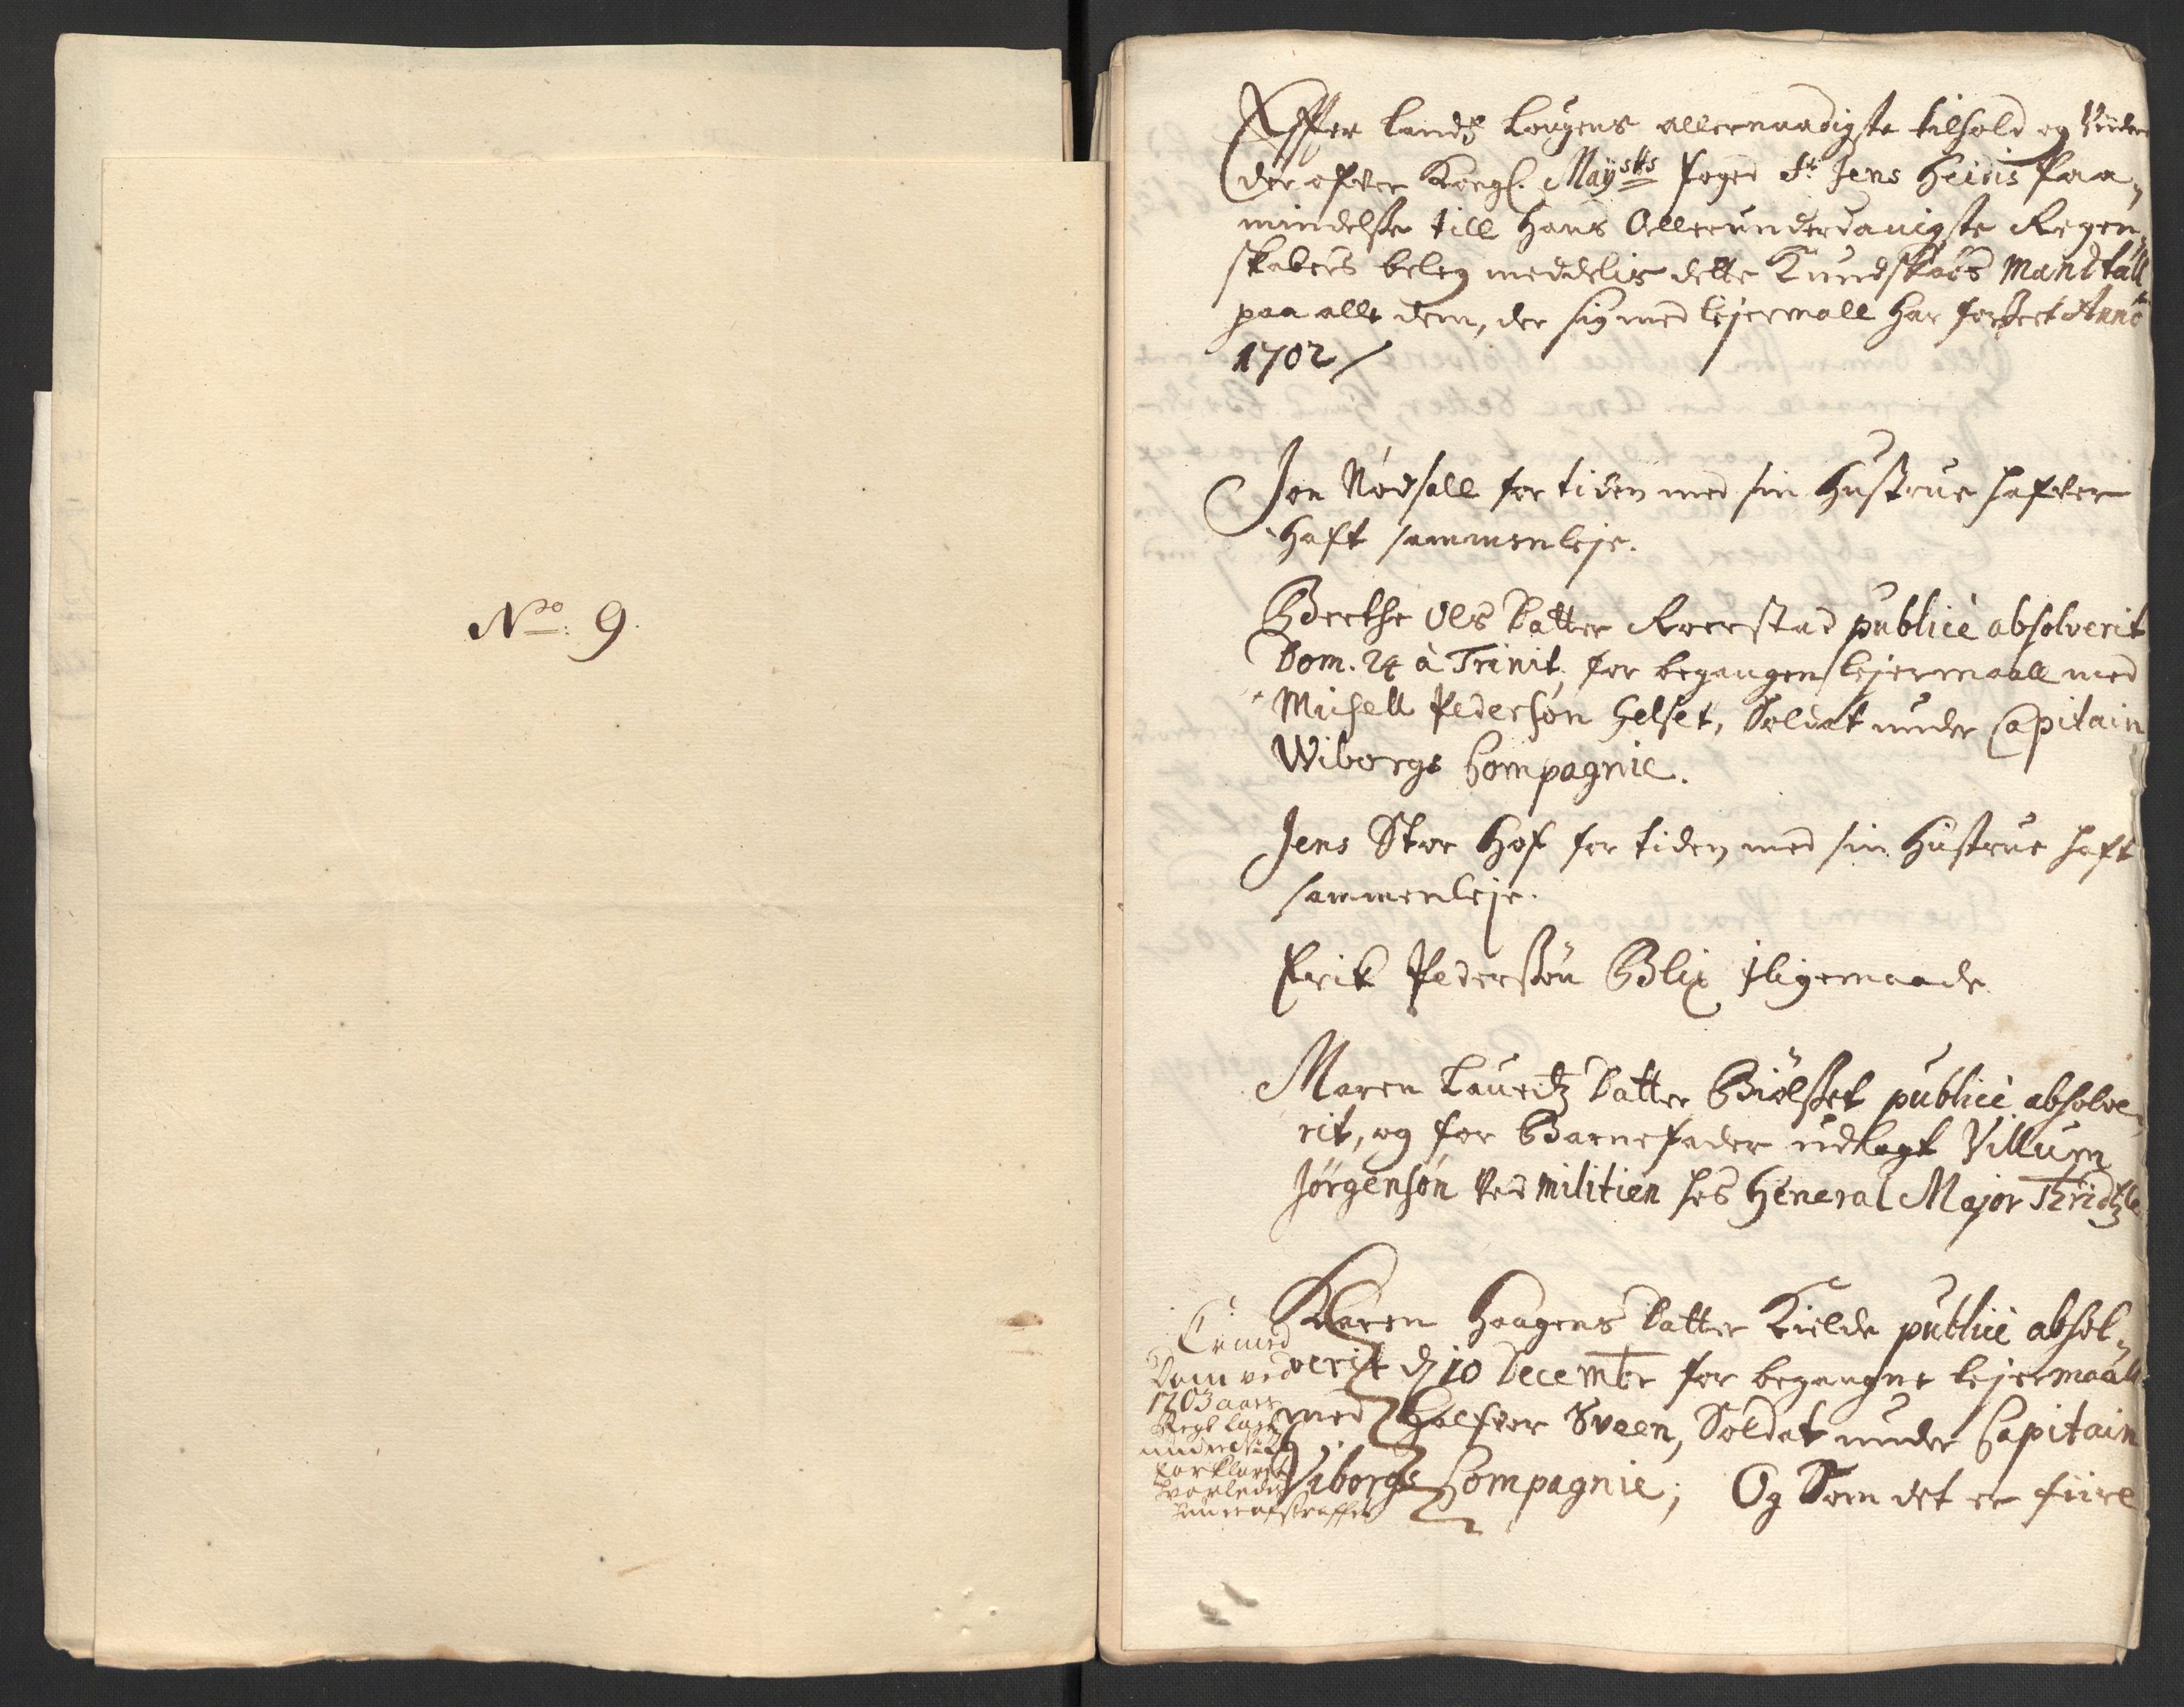 No: 9.
Effter Lands Lougens allernaadigste tilhold og Viidere
der ofver Kongl. Mayts foged Sr Jens Heiris Paa¬
mindelße till hans Allerunderdanigste Regen¬
skabers beleg meddelis dette Kundskabs Mandtall
paa alle dem, der sig med lejermall har forseet Anno
1702 /
Jon Nordsall for tiden med sin hustrue hafver
haft sammenleje.
Berthe Ols Datter Roerstad publicè absolverit
Dom. 24 à Trinit. for begangen lejermaall med
Michell Pedersøn Helset, Soldat under Capitain
Wiborgs Compagnie.
Jens Stor Hof for tiden med sin hustrue haft
sammenleje.
Erik Pederssøn Blix iligemaade
Maren Lauridz Datter Biølsset publicè absolve¬
rit, og for Barnefader udlagt Villum
Jørgensøn ved militien hos General Major
Karen Haagens Datter Kielde publicè absol¬
verit d 10 Decembr for begangne lejermaall
med Halfvor Sveen, Soldat under Capitain
Viborgs Compagnie; Og Som det er fiire
Er med
Dom ved
1703 aars
Regl lagt
under
forklaret
hvorledis
hun er afstraffet